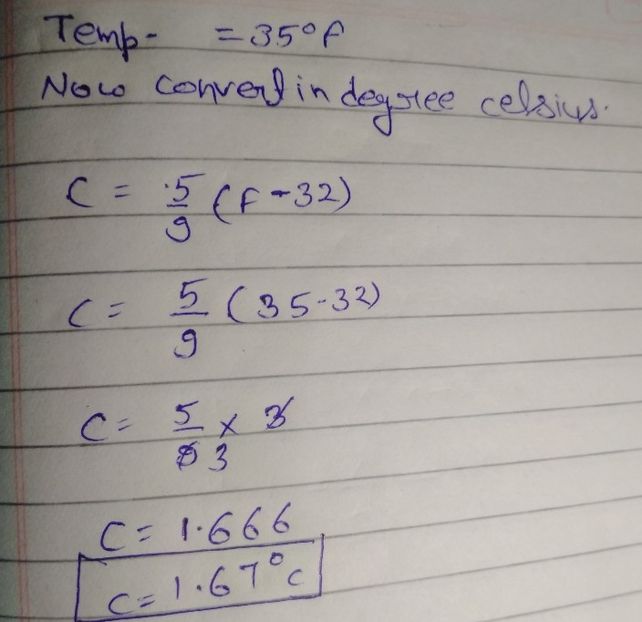 Temp- = 35°F
Now convert in degree celsius.
C = 5/9 (F-32)
C = 5/9 (35-32)
C = 5/9 3 x 3
C = 1.666
C = 1.67°C